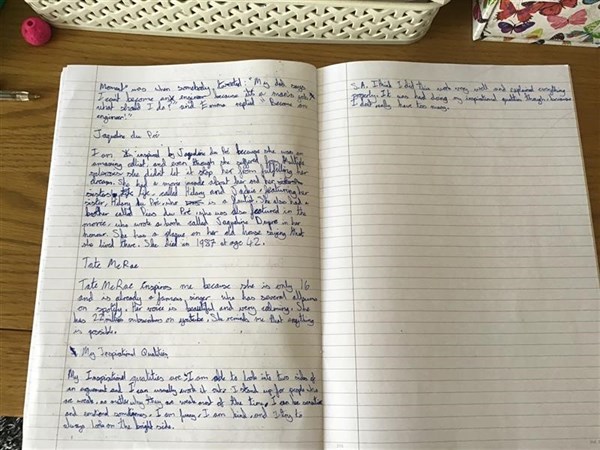 Moment" was when somebody tweeted: "My dad says
I can't become an engineer because it's a man's job,
what should I do?" and Emma replied "Become an
engineer!"
Jaqueline du Pré
I am inspired by Jaqueline du Pré because she was an
amazing cellist and even though she suffered Multiple
sclerosis she didn't let it stop her from fulfilling her
dream. She had a movie made about her and her
sisters life called Hilary and Jackie, featuring her
sister, Hilary du Pré, who is a flutist. She also had a
brother called Piers du Pré, who was also featured in the
movie, who wrote a book called Jaqueline Dupre in her
honour. She has a plaque on her old house saying that
she lived there. She died in 1987 at age 42.
Tate McRae
Tate McRae Inspires me because she is only 16
and is already a famous singer who has several albums
on spotify. Her voice is beautiful and very calming. She
has 2. million subscribers on youtube. She reminds me that anything
is possible.
My Inspirational Qualities
My Inspirational qualities are: I am able to look into two sides of
an argument and I can usually work it out. I stand up for people who
are weak, no matter why they are weak most of the time. I can be sensitive
and emotional sometimes. I am funny, I am kind, and I try to
always look on the bright side.
S.A. I think I did this work very well and explained everything
properly. It was hard doing my inspirational qualities though, because
I don't really have too many.